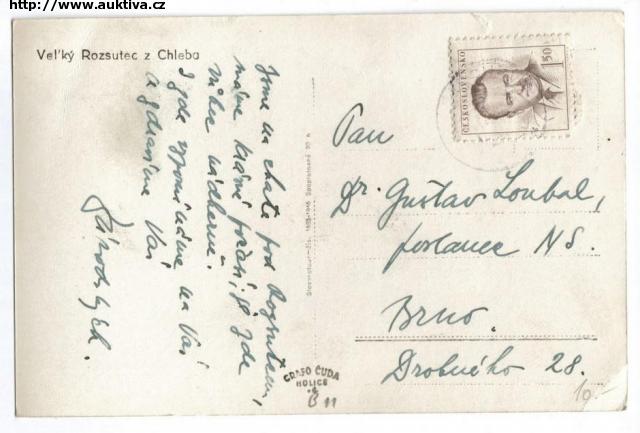 http://www.auktiva.cz
Veľký Rozsutec z Chleba
Jsme na chatě pod Rozsutcem,
máme krásné počasí, je zde
vůbec nádherně.
I zde vzpomínáme na Vás
a zdravíme Vás
ČESKOSLOVENSKO
1.50
Pan
Dr. Gustav Loubal,
poslanec NS.
Brno.
Drobného 28.
GRAFO ČUDA
HOLICE
B 11
10.-